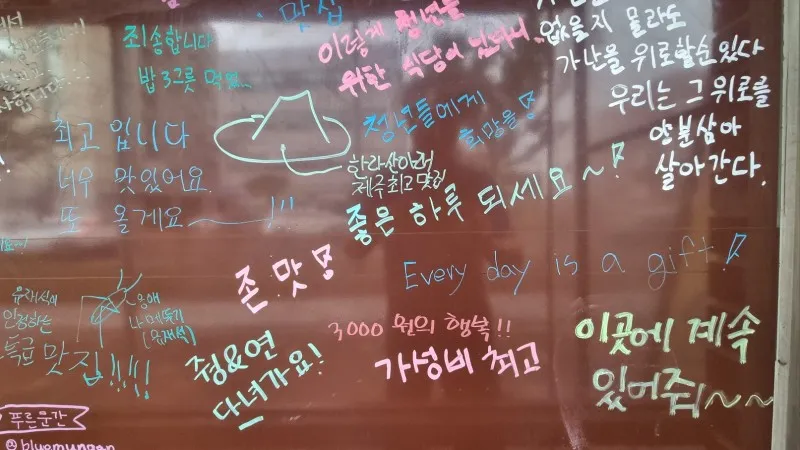 맛집
죄송합니다
밥 3그릇 먹었..
이렇게 청년들
위한 식당이 난다니..
없을지 몰라도
가난을 위로할순있다
우리는 그 위로를
양분삼아
살아간다.
최고입니다
너무 맛있어요.
또 올게요~!!!
청년들에게
희망을!
한라산아래
제주 최고 맛집
좋은 하루 되세요~!
Every day is a gift!
존맛!
유재석이
인정하는
특급 맛집!!!!
3000 원의 행복!!
가성비 최고
정&연
다녀가요!
이곳에 계속
있어줘~~
푸른문간
@bluemungan